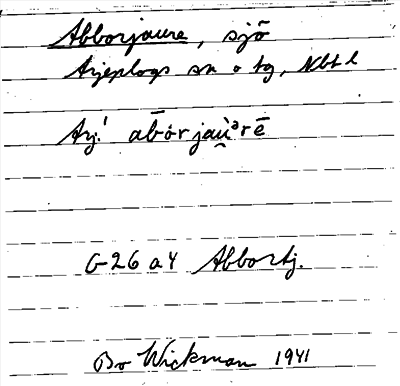 Abborjaure, sjö
Arjeplogs sn o tg, Nbt l
Arj.
G-26 a 4 Abbortj.
Bo Wickman 1941